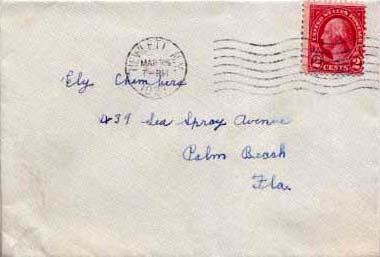 HEWLETT N.Y.
MAR
7-PM
UNITED STATES POSTAGE
2 CENTS 2
Ely Chimbers
439 Sea Spray Avenue
Palm Beach
Fla.